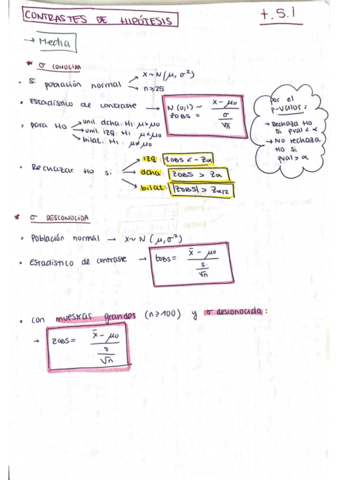 CONTRASTES DE HIPÓTESIS
t.5.1
→ Media
* σ CONOCIDA
• Si población normal → X~N(μ, σ²)
→ n≥25
• Estadístico de contraste → N(0,1) ~ ZOBS = x̄ - μ₀ / σ/√n
• para H₀ → unil. dcha. H₁: μ>μ₀
→ unil. izq. H₁: μ<μ₀
→ bilat. H₁: μ≠μ₀
• Rechazar H₀ si → izq. ZOBS < -Zα
→ dcha. ZOBS > Zα
→ bilat. |ZOBS| > Zα/2
por el
p-valor:
→ Rechaza H₀
si pval < α
→ No rechaza
H₀ si
pval > α
* σ DESCONOCIDA
• Población normal → X~N(μ, σ²)
• Estadístico de contraste → tOBS = x̄ - μ₀ / s/√n
• con muestras grandes (n≥100) y σ desconocida:
→ ZOBS = x̄ - μ₀ / s/√n